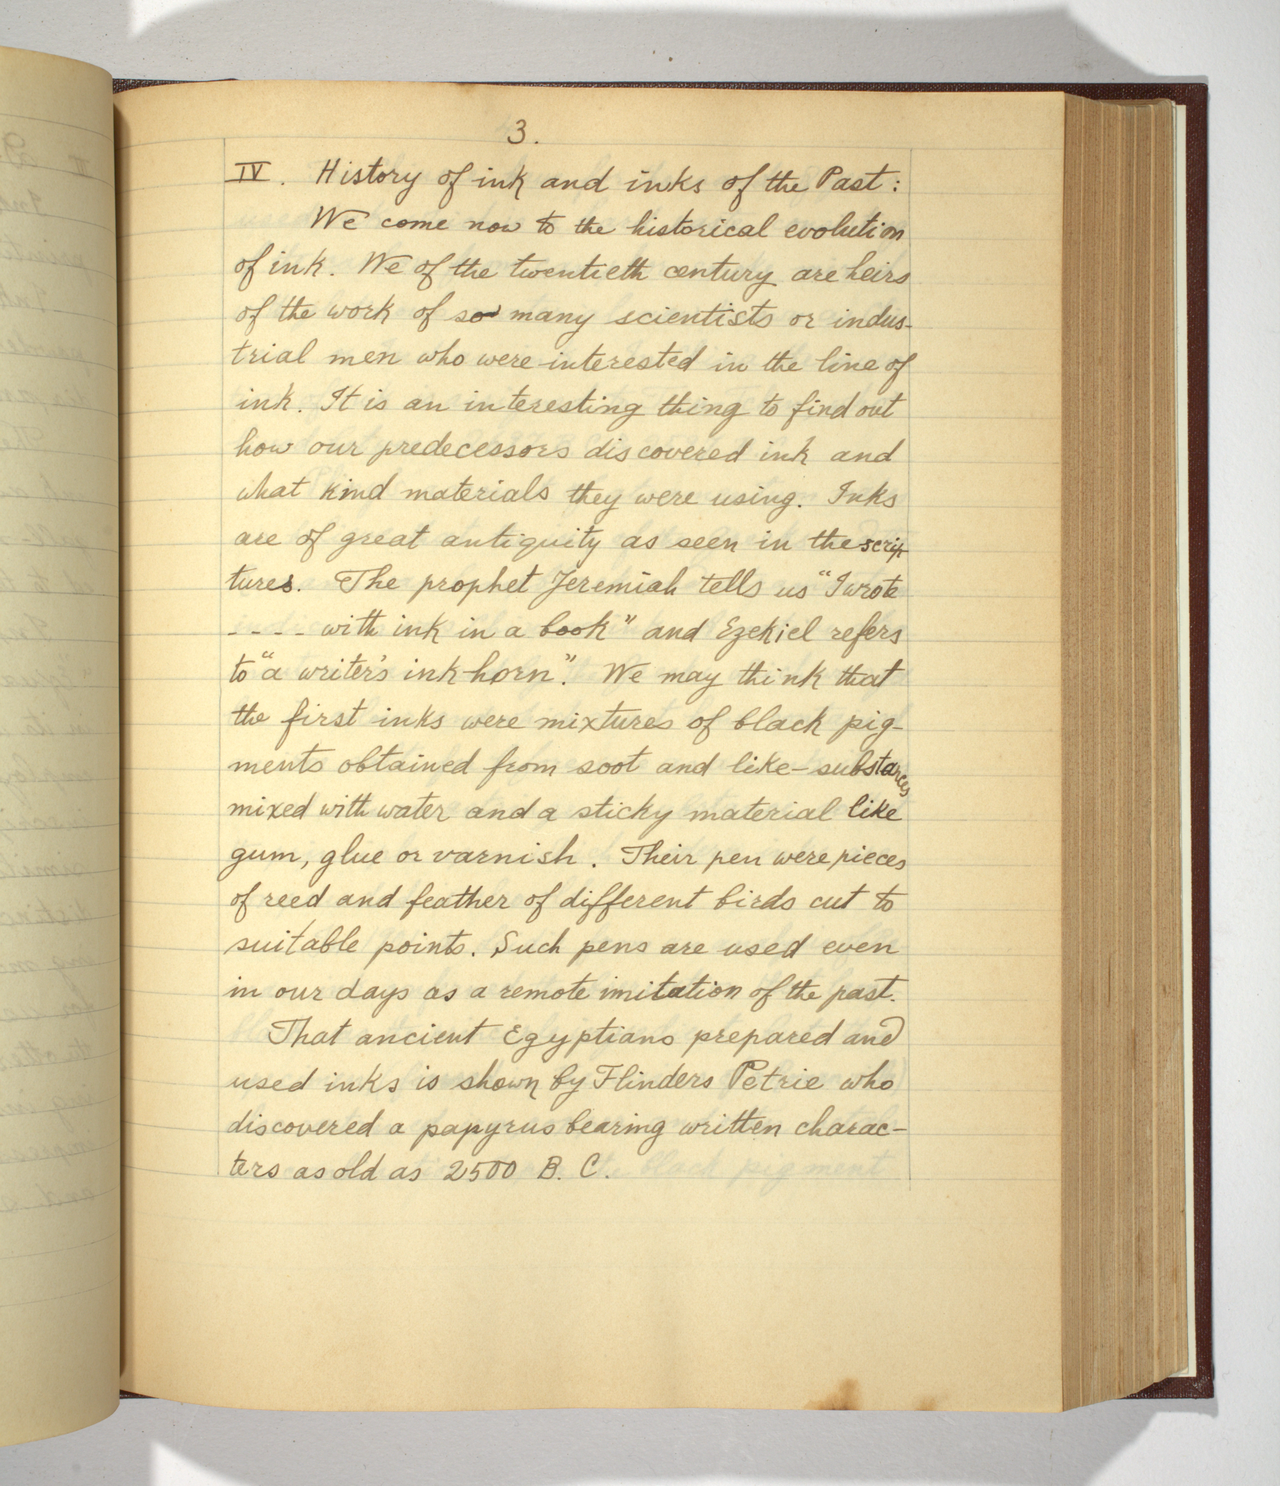 3.
IV. History of ink and inks of the Past:
We come now to the historical evolution
of ink. We of the twentieth century are heirs
of the work of so many scientists or indus-
trial men who were interested in the line of
ink. It is an interesting thing to find out
how our predecessors discovered ink and
what kind materials they were using. Inks
are of great antiquity as seen in the scrip-
tures. The prophet Jeremiah tells us "I wrote
---- with ink in a book" and Ezekiel refers
to "a writer's ink-horn". We may think that
the first inks were mixtures of black pig-
ments obtained from soot and like-substances
mixed with water and a sticky material like
gum, glue or varnish. Their pen were pieces
of reed and feather of different birds cut to
suitable points. Such pens are used even
in our days as a remote imitation of the past.
That ancient Egyptians prepared and
used inks is shown by Flinders Petrie who
discovered a papyrus bearing written charac-
ters as old as 2500 B. C.